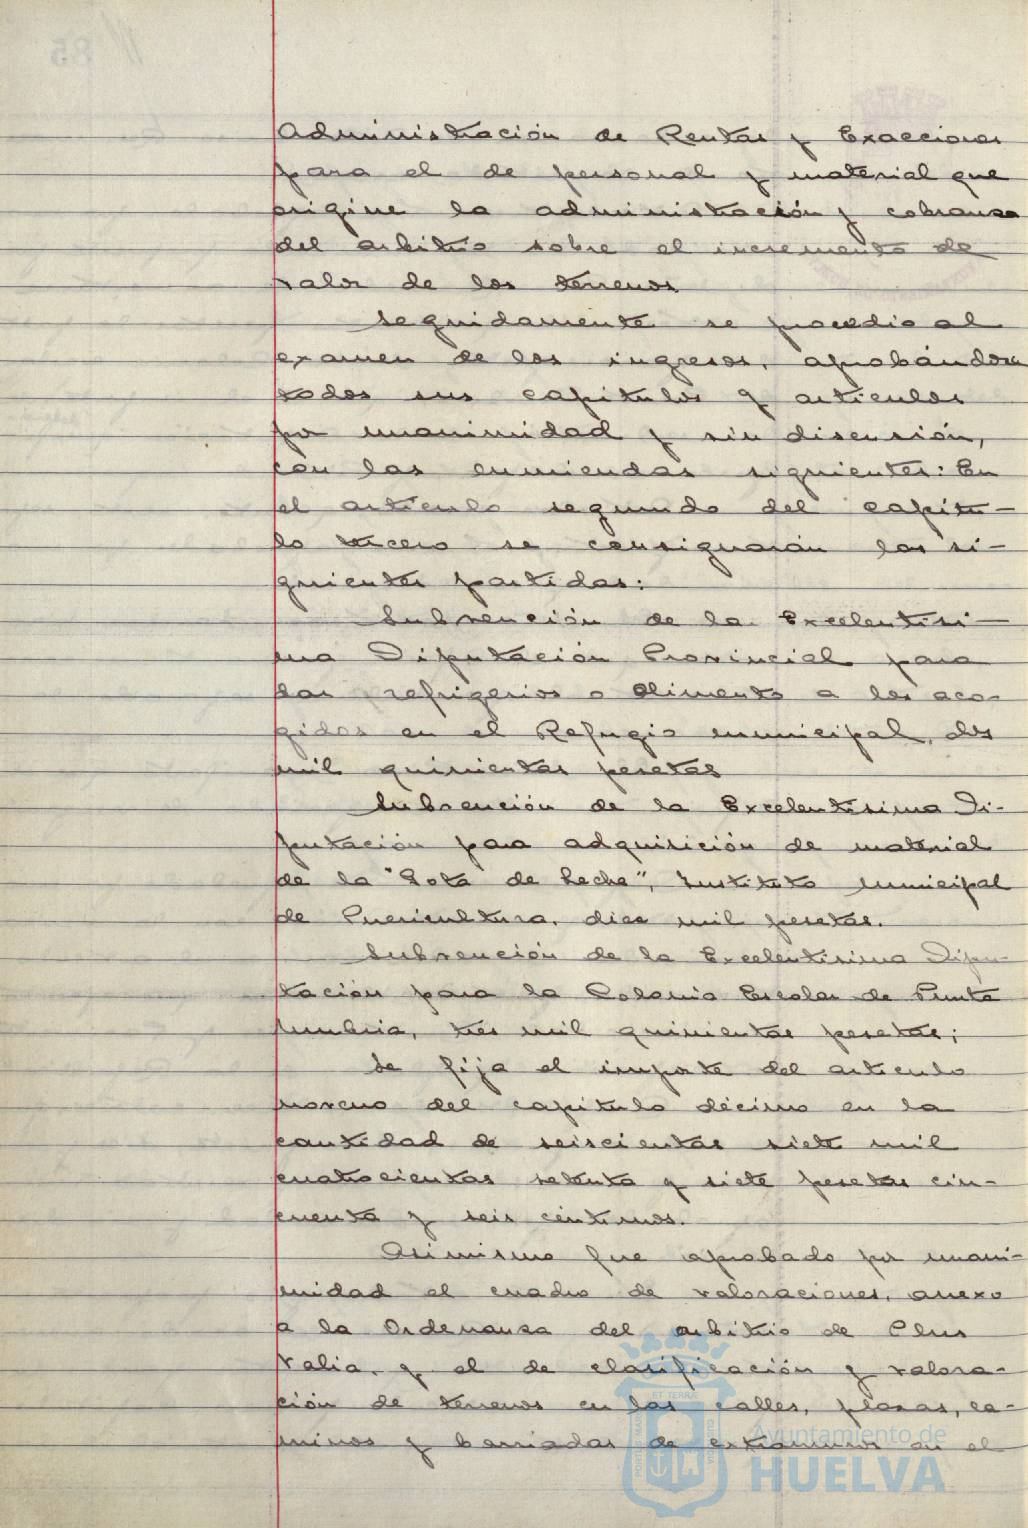 Administración de Rentas y Exacciones
para el de personal y material que
origine la administración y cobranza
del arbitrio sobre el incremento de
valor de los terrenos
Seguidamente se procedio al
examen de los ingresos, aprobándose
todos sus capitulos y articulos
por unanimidad y sin discusión,
con las enmiendas siguientes: En
el articulo segundo del capitu-
lo tercero se consignarán las si-
guientes partidas:
Subvención de la Excelentisi-
ma Diputación Provincial para
dar refrigerios o alimento a los aco-
gidos en el Refugio municipal, dos
mil quinientas pesetas
Subvención de la Excelentisima Di-
putación para adquisición de material
de la "Gota de Leche", Instituto municipal
de Puericultura, diez mil pesetas.
Subvención de la Excelentisima Dipu-
tación para la Colonia Escolar de Punta
Umbria, tres mil quinientas pesetas;
Se fija el importe del articulo
noveno del capitulo décimo en la
cantidad de seiscientas siete mil
cuatrocientas setenta y siete pesetas cin-
cuenta y seis céntimos.
Asimismo fue aprobado por unani-
midad el cuadro de valoraciones, anexo
a la Ordenanza del arbitrio de Plus
Valia, y el de clasificación y valora-
ción de terrenos en las calles, plazas, ca-
minos y barriadas de extramuros en el
Ayuntamiento de
HUELVA